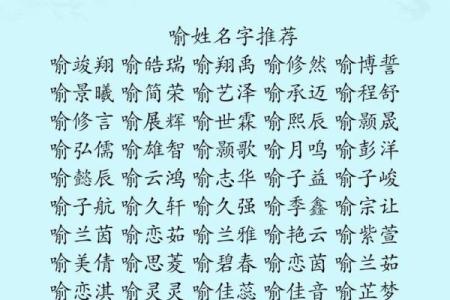 喻姓名字推荐
喻竣翔 喻皓瑞 喻翔禹 喻修然 喻博誓
喻景曦 喻简荣 喻艺泽 喻承迈 喻程舒
喻修言 喻展辉 喻世霖 喻熙辰 喻颢晟
喻弘儒 喻雄智 喻颢歌 喻月鸣 喻彭洋
喻懿辰 喻云鸿 喻志华 喻子益 喻子峻
喻子航 喻久轩 喻久强 喻季鑫 喻宗让
喻兰茵 喻恋茹 喻兰雅 喻艳云 喻紫萱
喻美倩 喻思菱 喻碧春 喻恋茵 喻兰茹
喻恋淇 喻灵灵 喻佳蕊 喻佳音 喻芷梦